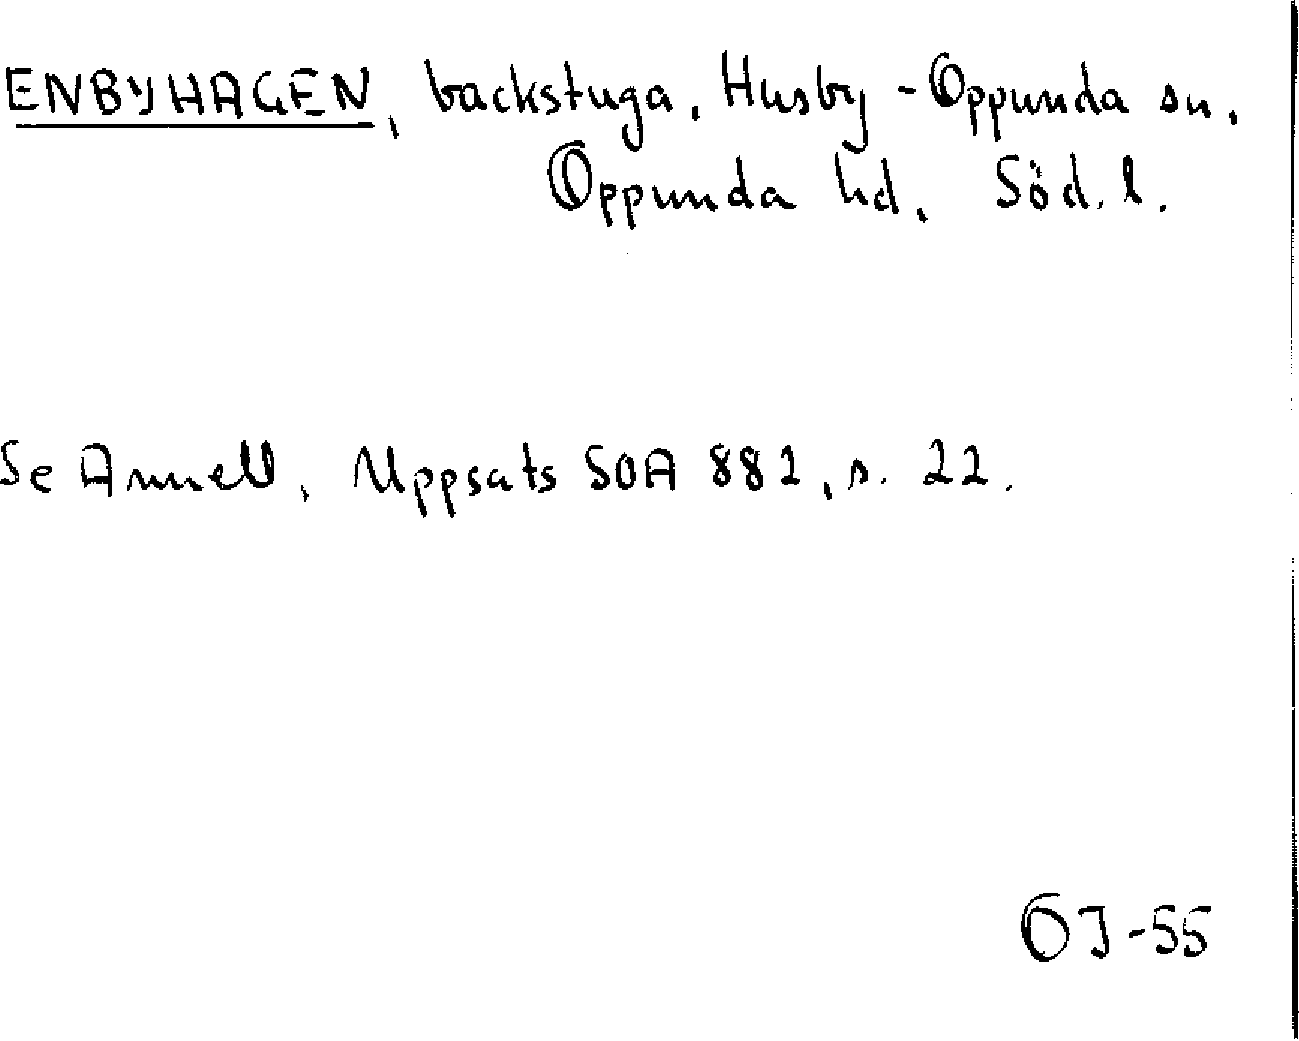 ENBYHAGEN, backstuga, Husby-Oppunda sn.
Oppunda hd. Söd. l.
Se Annell, Uppsats SOA 882, s. 22.
OJ-55